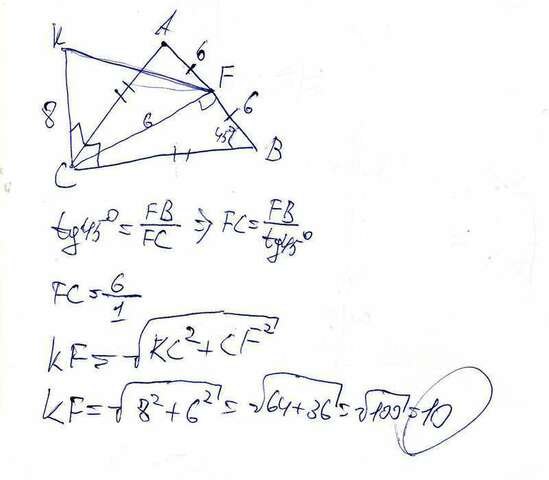 A
K
6
F
8
6
6
45°
C
B
tg45° = FB/FC ⇒ FC = FB/tg45°
FC = 6/1
KF = √KC² + CF²
KF = √8² + 6² = √64 + 36 = √100 = 10